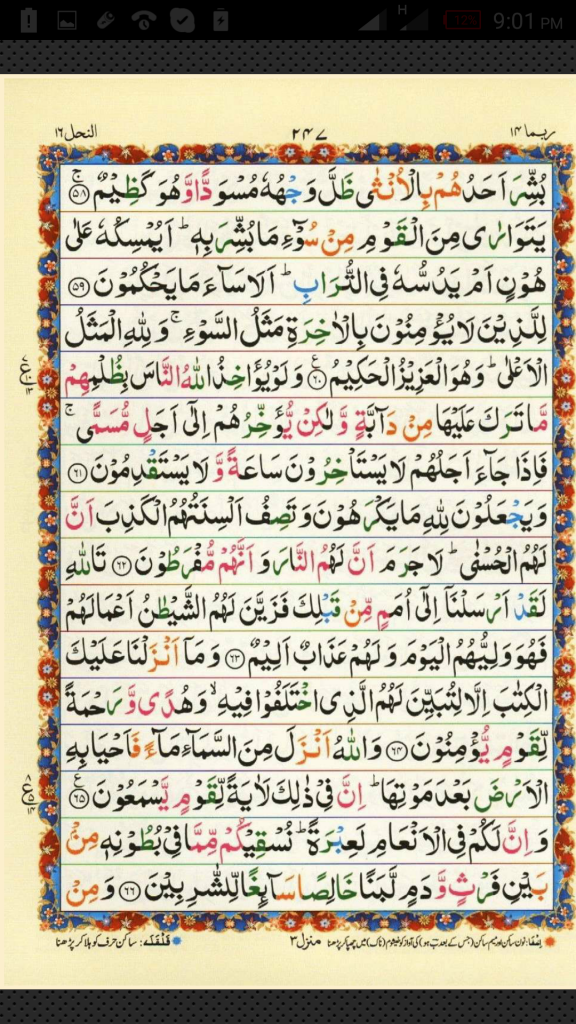 H 12% 9:01 PM
النحل ١٦ ٢٤٧ ربما ١٤
بُشِّرَ اَحَدُهُمۡ بِالۡاُنۡثٰى ظَلَّ وَجۡهُهٗ مُسۡوَدًّا وَّهُوَ كَظِيۡمٌ ۚ ﴿۵۸﴾
يَتَوَارٰى مِنَ الۡقَوۡمِ مِنۡ سُوۡٓءِ مَا بُشِّرَ بِهٖ ؕ اَيُمۡسِكُهٗ عَلٰى
هُوۡنٍ اَمۡ يَدُسُّهٗ فِى التُّرَابِ ؕ اَلَا سَآءَ مَا يَحۡكُمُوۡنَ ﴿۵۹﴾
لِلَّذِيۡنَ لَا يُؤۡمِنُوۡنَ بِالۡاٰخِرَةِ مَثَلُ السَّوۡءِ ۚ وَلِلّٰهِ الۡمَثَلُ
الۡاَعۡلٰى ؕ وَهُوَ الۡعَزِيۡزُ الۡحَكِيۡمُ ﴿۶۰﴾ وَلَوۡ يُؤَاخِذُ اللّٰهُ النَّاسَ بِظُلۡمِهِمۡ
مَّا تَرَكَ عَلَيۡهَا مِنۡ دَآبَّةٍ وَّلٰـكِنۡ يُّؤَخِّرُهُمۡ اِلٰٓى اَجَلٍ مُّسَمًّى ۚ
فَاِذَا جَآءَ اَجَلُهُمۡ لَا يَسۡتَاۡخِرُوۡنَ سَاعَةً وَّلَا يَسۡتَقۡدِمُوۡنَ ﴿۶۱﴾
وَيَجۡعَلُوۡنَ لِلّٰهِ مَا يَكۡرَهُوۡنَ وَتَصِفُ اَلۡسِنَتُهُمُ الۡكَذِبَ اَنَّ
لَهُمُ الۡحُسۡنٰى ؕ لَا جَرَمَ اَنَّ لَهُمُ النَّارَ وَاَنَّهُمۡ مُّفۡرَطُوۡنَ ﴿۶۲﴾ تَاللّٰهِ
لَقَدۡ اَرۡسَلۡنَاۤ اِلٰٓى اُمَمٍ مِّنۡ قَبۡلِكَ فَزَيَّنَ لَهُمُ الشَّيۡطٰنُ اَعۡمَالَهُمۡ
فَهُوَ وَلِيُّهُمُ الۡيَوۡمَ وَلَهُمۡ عَذَابٌ اَلِيۡمٌ ﴿۶۳﴾ وَمَاۤ اَنۡزَلۡنَا عَلَيۡكَ
الۡكِتٰبَ اِلَّا لِتُبَيِّنَ لَهُمُ الَّذِى اخۡتَلَفُوۡا فِيۡهِ ۙ وَهُدًى وَّرَحۡمَةً
لِّقَوۡمٍ يُّؤۡمِنُوۡنَ ﴿۶۴﴾ وَاللّٰهُ اَنۡزَلَ مِنَ السَّمَآءِ مَآءً فَاَحۡيَا بِهِ
الۡاَرۡضَ بَعۡدَ مَوۡتِهَا ؕ اِنَّ فِىۡ ذٰلِكَ لَاٰيَةً لِّقَوۡمٍ يَّسۡمَعُوۡنَ ﴿۶۵﴾
وَاِنَّ لَكُمۡ فِى الۡاَنۡعَامِ لَعِبۡرَةً ؕ نُسۡقِيۡكُمۡ مِّمَّا فِىۡ بُطُوۡنِهٖ مِنۡۢ
بَيۡنِ فَرۡثٍ وَّدَمٍ لَّبَنًا خَالِصًا سَآئِغًا لِّلشّٰرِبِيۡنَ ﴿۶۶﴾ وَمِنۡ
منزل ۳
قلقلہ: ساکن حرف کو ہلا کر پڑھنا